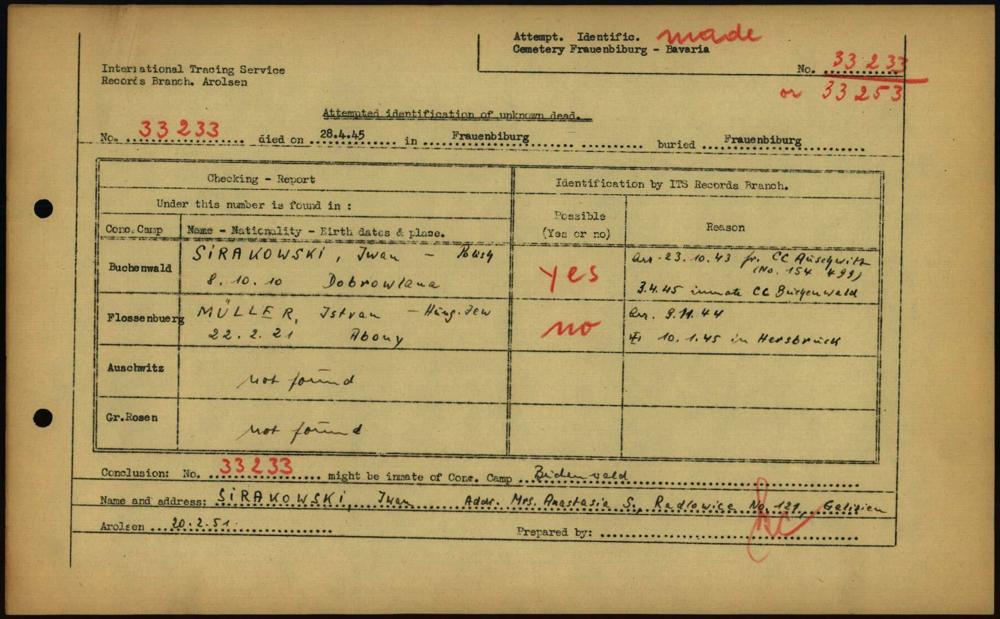 Attempt. Identific. made
Cemetery Frauenbiburg - Bavaria
No. 33 233
or 33 253
International Tracing Service
Records Branch. Arolsen
Attempted identification of unknown dead.
No. 33 233 died on 28.4.45 in Frauenbiburg buried Frauenbiburg
Checking - Report
Identification by ITS Records Branch.
Under this number is found in :
Possible
(Yes or no)
Reason
Conc. Camp
Name - Nationality - Birth dates & place.
Buchenwald
SIRAKOWSKI, Iwan - Polish
8. 10. 10 Dobrowlana
yes
arr. 23.10.43 fr. CC Auschwitz
(No. 154 499)
3.4.45 inmate CC Buchenwald
Flossenbuerg
MÜLLER, Istvan - Hung. Jew
22. 2. 21 Abony
no
arr. 9.11.44
10.1.45 in Hersbruck
Auschwitz
not found
Gr.Rosen
not found
Conclusion: No. 33233 might be inmate of Conc. Camp Buchenwald
Name and address: SIRAKOWSKI, Iwan Addr. Mrs. Anastasia S., Radlowice No. 121, Galizien
Arolsen 20.2.51.
Prepared by: